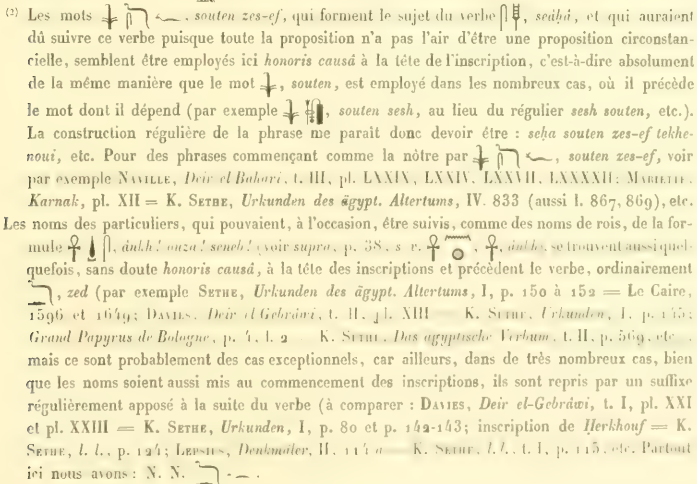 (2) Les mots 𓇓 𓊃𓆓 𓆑. souten zes-ef, qui forment le sujet du verbe, seāhā, et qui auraient
dû suivre ce verbe puisque toute la proposition n'a pas l'air d'être une proposition circonstan-
cielle, semblent être employés ici honoris causâ à la tête de l'inscription, c'est-à-dire absolument
de la même manière que le mot 𓇓, souten, est employé dans les nombreux cas, où il précède
le mot dont il dépend (par exemple 𓇓 𓏞, souten sesh, au lieu du régulier sesh souten, etc.).
La construction régulière de la phrase me paraît donc devoir être : seḥa souten zes-ef tekhe-
noui, etc. Pour des phrases commençant comme la nôtre par, souten zes-ef, voir
par exemple NAVILLE, Deir el Bahari, t. III, pl. LXXIV, LXXIV, LXXVII, LXXXXII; MARIETTE,
Karnak, pl. XII = K. SETHE, Urkunden des ägypt. Altertums, IV. 833 (aussi l. 867, 869), etc.
Les noms des particuliers, qui pouvaient, à l'occasion, être suivis, comme des noms de rois, de la for-
mule 𓋹 𓍑 𓋴, ânkh! ouza! seneb! (voir supra, p. 38, s. v. 𓋹 𓈖 𓐍, 𓋹, ânkh, se trouvent aussi quel-
quefois, sans doute honoris causâ, à la tête des inscriptions et précèdent le verbe, ordinairement
𓆓, zed (par exemple SETHE, Urkunden des ägypt. Altertums, I, p. 150 à 152 = Le Caire,
1596 et 1649; DAVIES, Deir el Gebrâwi, t. II, pl. XIII K. SETHE, Urkunden, I, p. 145;
Grand Papyrus de Bologne, p. 4, l. 2 K. SETHE, Das ägyptische Verbum, t. II, p. 569, etc.
mais ce sont probablement des cas exceptionnels, car ailleurs, dans de très nombreux cas, bien
que les noms soient aussi mis au commencement des inscriptions, ils sont repris par un suffixe
régulièrement apposé à la suite du verbe (à comparer : DAVIES, Deir el-Gebrâwi, t. I, pl. XXI
et pl. XXIII = K. SETHE, Urkunden, I, p. 80 et p. 142-143; inscription de Ḥerkhouf = K.
SETHE, l. l., p. 124; LEPSIUS, Denkmäler, II, 114 a K. SETHE, l. l., t. I, p. 115, etc. Partout
ici nous avons : N. N. 𓆓 𓆑.